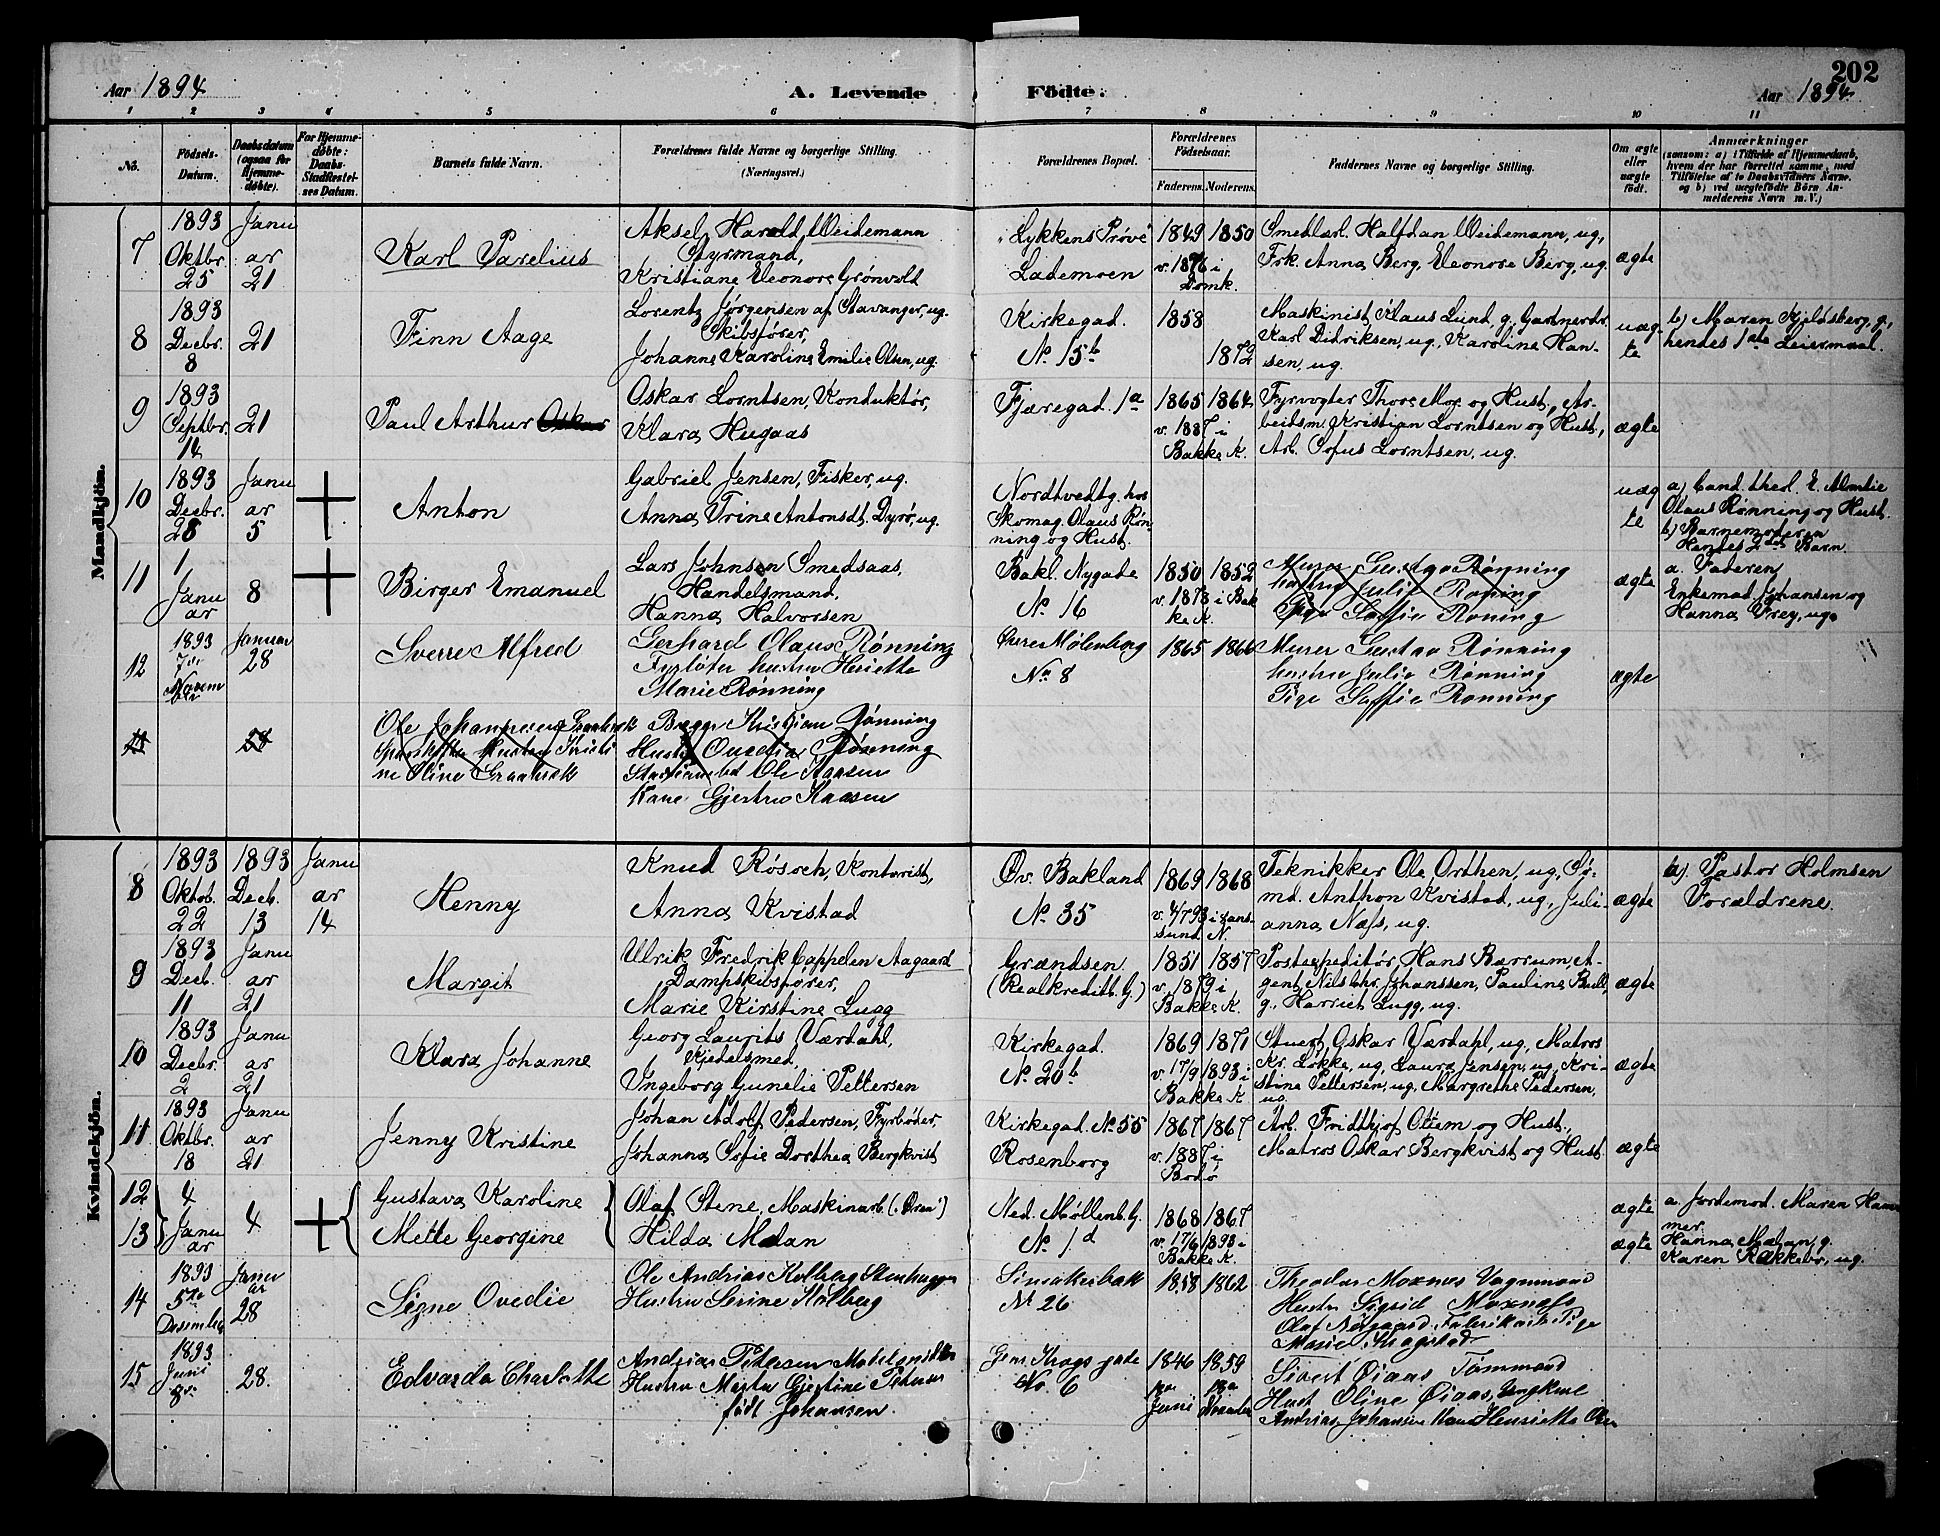 202
Aar 1894
A. Levende
Födte.
Aar 1894
1 2 3 4 5 6 7 8 9 10 11
No.
Födsels-
Datum.
Daabsdatum
(ogsaa for
Hjemme-
döbte).
For Hjemme-
döbte:
Daabs-
Stadfæstel-
ses Datum.
Barnets fulde Navn.
Forældrenes fulde Navne og borgerlige Stilling.
(Næringsvei.)
Forældrenes Bopæl.
Forældrenes
Födselsaar.
Faderens. Moderens.
Faddernes Navne og borgerlige Stilling.
Om ægte
eller
uægte
födt.
Anmærkninger
(saasom: a) i Tilfælde af Hjemmedaab,
hvem der har forrettet samme, med
Tilföielse af to Daabsvidners Navne,
og b) ved uægtefödte Börn An-
melderens Navn m. V.)
Mandkjön.
7
1893
Oktbr.
25
Janu
ar
21
Karl Parelius
Aksel Harald Weidemann
Styrmand,
Kristiane Eleonore Grønvold
"Lykkens Prøve"
Lademoen
1849 1850
v. 1876 i
Domk.
Smedlærl. Halfdan Weidemann, ug,
Frk. Anna Berg, Eleonore Berg, ug.
ægte
8
1893
Decbr.
8
21
Finn Aage
Lorentz Jørgensen af Stavanger, ug.
Skibsfører,
Johanna Karoline Emilie Olsen, ug.
Kirkegad.
No. 15b
1858
1872
Maskinist Klaus Lund, g, Gartnerdr.
Karl Didriksen, ug, Karoline Han-
sen, ug.
uæg
te
b) Maren Kjeldsberg, g,
hendes 1ste Leiermaal.
9
1893
Septbr.
14
21
Paul Arthur Oskar
Oskar Lorntsen, Konduktør,
Klara Hugaas
Fjæregad. 1a
1865 1864
v. 1887 i
Bakke K.
Fyrvogter Thore Moe og Hust., Ar-
beidsm. Kristian Lorntsen og Hust,
Arb. Sofus Lorntsen, ug.
ægte
10
1893
Decbr.
28
Janu
ar
5
Anton
Gabriel Jensen, Fisker, ug.
Anna Trine Antonsdt. Dyrø, ug.
Nordtvedtg. hos
Skomag. Olaus Røn-
ning og Hust.
uæg
te
a) Cand. theol. E. Almlie
Olaus Rønning og Hust.
b) Barnemoderen
Hendes 2det Barn.
11
1
Janu
ar
8
Birger Emanuel
Lars Johnsen Smedsaas,
Handelsmand,
Hanna Halvorsen
Bakl. Nygade
No. 16
1850 1852
v. 1878 i Bak
ke K.
Murer Gustav Rønning
hustru Julie Rønning
Pige Soffie Rønning
ægte
a. Faderen
Enkemad. Johansen og
Hanna Frey, ug.
12
1893
7de
Novem
ber
Januar
28
Sverre Alfred
Gerhard Olaus Rønning
hustru Henriette
Marie Rønning
Øvre Mølenberg
No 8
1865 1866
Murer Gustav Rønning
hustru Julie Rønning
Pige Soffie Rønning
ægte
Ole Johannesen Graabræk
Hustru Kristi
ne Oline Graabræk
Kristian Rønning
Hustru Ovedia Rønning
Ole Kaasen
Kone Gjertru Kaasen
Kvindekjön.
8
1893
Oktob.
22
1893
Decb.
13
Janu
ar
14
Henny
Knud Røsoch, Kontorist,
Anna Kvistad
Øv. Bakland
No. 35
1869 1868
v. 4/7 93 i Kans
sund N.
Teknikker Ole Orthen, ug, Sø-
md. Anthon Kvistad, ug, Juli-
anna Næss, ug.
ægte
a). Pastor Holmsen
Forældrene.
9
1893
Decb.
11
Janu
ar
21
Margit
Ulrik Fredrik Cappelen Aagaard
Dampskibsfører,
Marie Kirstine Lugg
Grændsen
(Realkreditb. G.)
1851 1857
v. 1879 i
Bakke K.
Postexpeditør Hans Bærrum, A-
gent Nils Chr. Johanssen, Pauline Bull,
g, Harriet Lugg, ug.
ægte
10
1893
Decbr.
2
Janu
ar
21
Klara Johanne
Georg Laurits Værdahl,
Kjedelsmed,
Ingeborg Gunelie Pettersen
Kirkegad.
No. 20b
1869 1871
v. 17/9 1893 i
Bakke K
Stuert Oskar Værdahl, ug, Matros
Kr. Løkke, ug, Laura Jensen, ug, Kri-
stine Pettersen, ug, Margrethe Pedersen,
ug.
ægte
11
1893
Oktbr.
18
Janu
ar
21
Jenny Kristine
Johan Adolf Pedersen, Fyrbøder,
Johanna Sofie Dorthea Bergkvist
Kirkegad. No. 55
Rosenborg
1867 1867
v. 1887 i
Bodø
Arb. Fridthjof Olsen og Hust.,
Matros Oskar Bergkvist og Hust.
ægte
12
13
4
Janu
ar
4
Gustava Karoline
Mette Georgine
Olaf Stene, Maskinarb. ("Ørens")
Hilda Malan
Ned. Møllenb. G.
No. 1d
1868 1867
v. 17/6 1893 i
Bakke K.
ægte
ægte
a. Jordemod. Maren Ham
mer.
Hanna Malan, g.
Karen Rækkebo, ug.
14
1893
5te
Desember
Janu
ar
28
Signe Ovedie
Ole Andrias Kolberg Stenhugger
Hustru Serine Kolberg
Simsikerbak
No 26
1858 1862
Theodor Moxnes Vognmand
Hustr Sigrid Moxnæss
Olaf Nergaard, Fabrikarb. Pige
Marie Kragstad
15
1893
Juni
8de
28.
Edvarda Charlotte
Andrias Petersen
Hustru Gjertine Petersen
født Johansen
Gm. Krags gade
No. 6
1846 1859
Juni
Sivert Øiaas Tømmand
Hust Oline Øiaas, Ungkarl
Andrias Johansen Kone Henriette Olsen